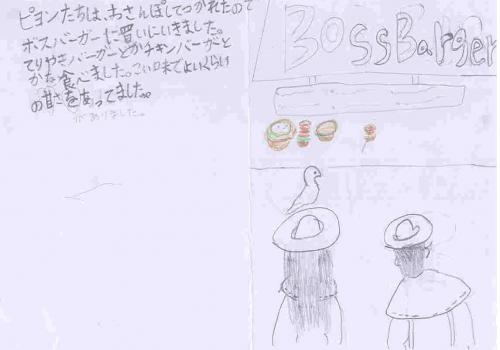 ピヨンたちは、おさんぽしてつかれたので
ボスバーガーに買いにいきました。
てりやきバーガーとかチキンバーガーと
かを食べました。こい口味でよいくらい
の甘さをあってました。
がありました。
BossBarger